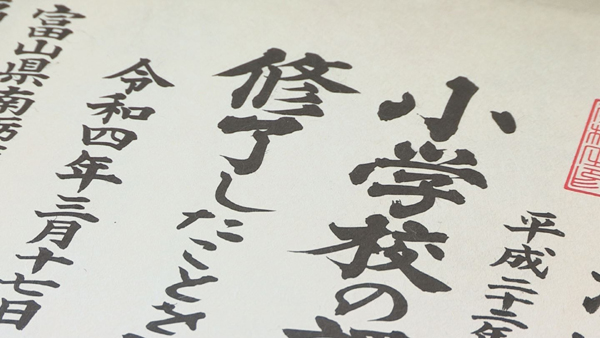 平成二十二年
小学校の課
修了したことを
令和四年三月十七日
富山県南砺